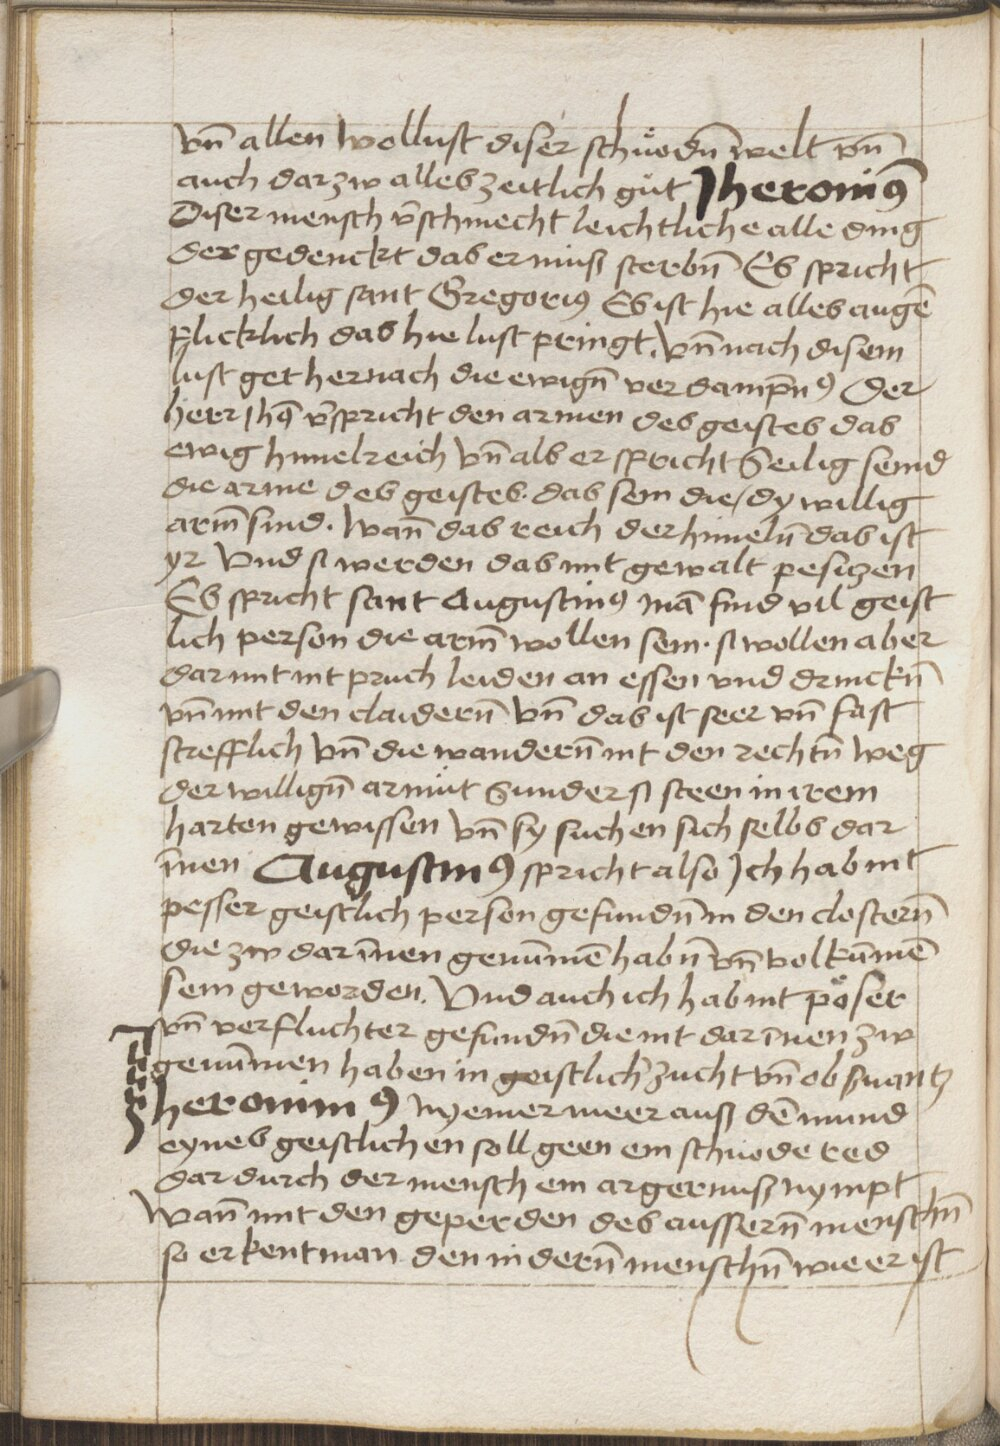 vn̄ allen wollust diser schnödn̄ welt vn̄
auch darzw alles zeitlich güt Jheronīꝰ
Diser mensch v̄schmecht leichtliche alle ding
der gedenckt das er muß sterbn̄ Es spricht
der heilig sant Gregoriꝰ Es ist hie alles augē
plicklich das hie lust pringt. vn̄ nach disem
lust get hernach die ewign̄ verdampnꝰ Der
herr Jhs̄ v̄spricht den armen des geistes das
ewig himelreich vn̄ als er spricht Seilig seind
die arme des geistes. das sein die / dy willig
arm̄ sind. Wan̄ das reich der himeln̄ das ist
yr Vnd si werden das mit gewalt pesiczen
Es spricht sant Augustinꝰ mā find vil geist
lich person die arm̄ wollen sein. si wollen aber
dar mit nit pruch leiden an essen vnd drinckn̄
vn̄ mit den claidern̄ vn̄ das ist seer vn̄ fast
strefflich vn̄ die wandern̄ nit den rechtn̄ weg
der willign̄ armüt Sunder si steen in irem
harten gewissen vn̄ sy suchen sich selbs dar
īnen Augustinꝰ spricht also Ich hab nit
pesser geistlich person gefundn̄ in den closternn̄
die zw darīnen genūmē habn̄ vn̄ volkūmē
sein geworden. Vnd auch ich hab nit pöser
vn̄ verfluchter gefundn̄ die nit darīnen zw
genūmen haben in geistlich zucht vn̄ obsuantz
Jheronimꝰ nyemer meer auß dē mund
eynes geistlichen soll geen ein schnöde red
dar durch der mensch ein argernuß nympt
Wan̄ mit den geperden des aussern̄ menschn̄
so erkent man den indern̄ menschn̄ wie er ist